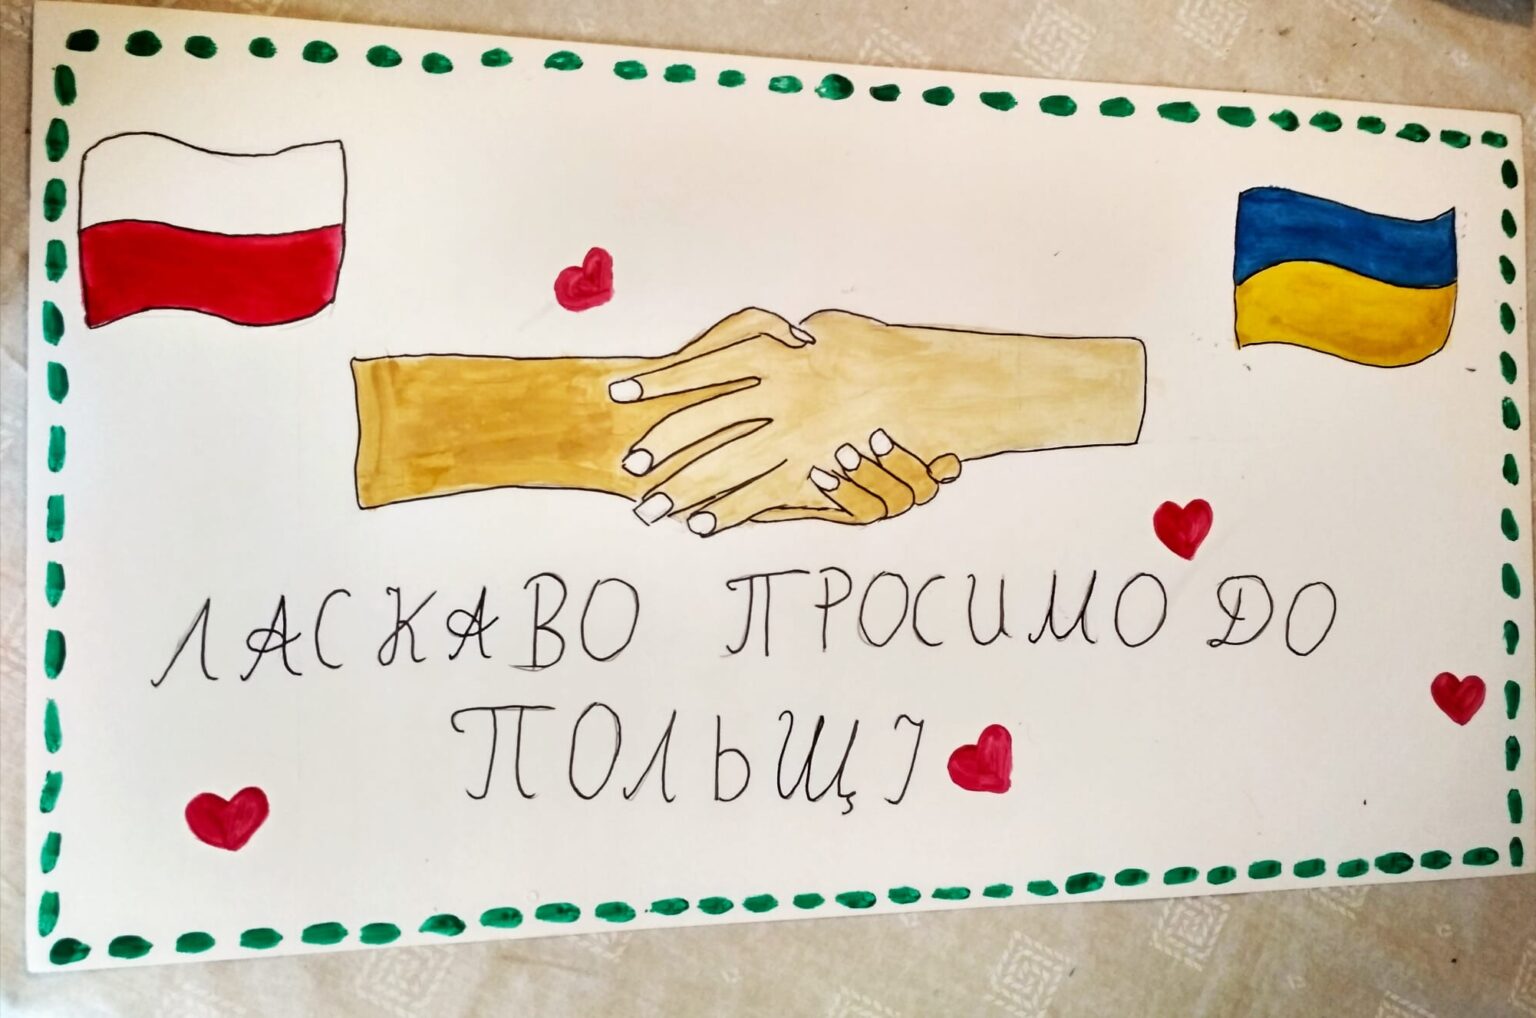 ЛАСКАВО ПРОСИМО ДО
ПОЛЬЩІ